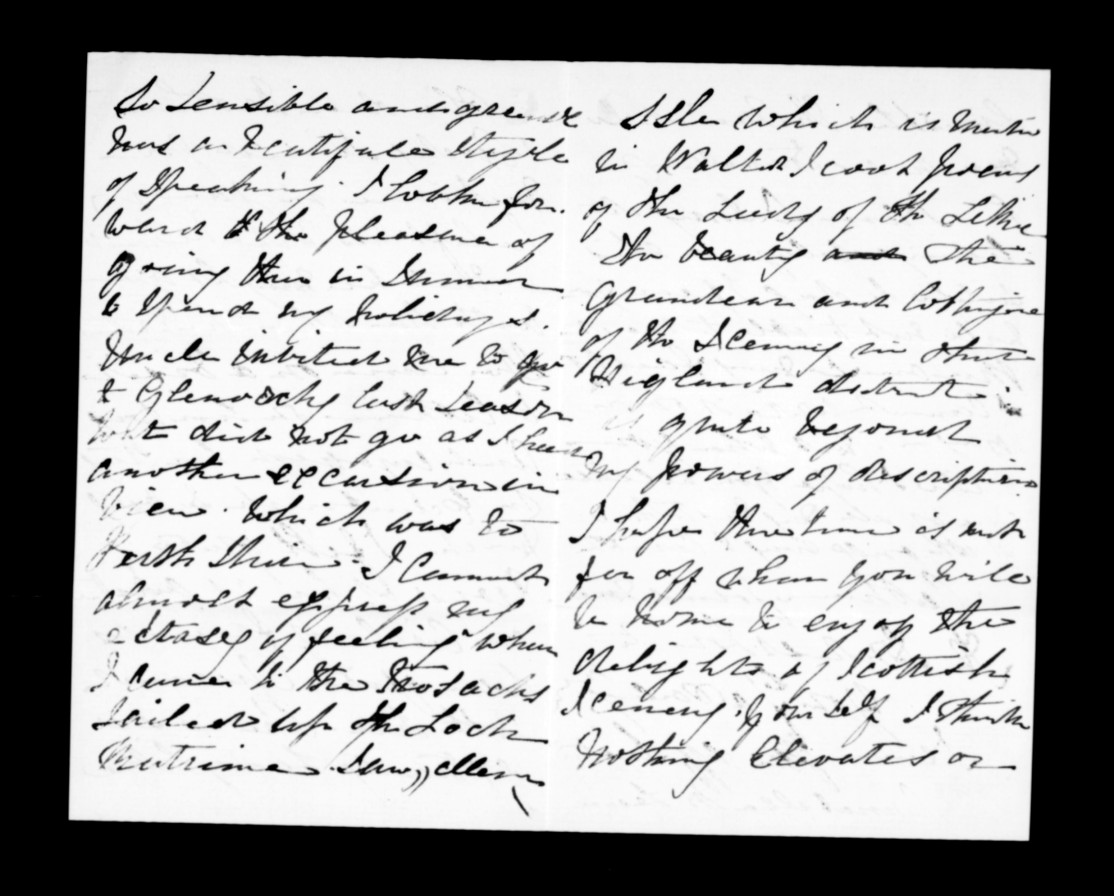 So Sensible and
has a beautiful style
of Speaking. I look for-
ward to the pleasure of
going there in Summer
to Spend my holidays.
Uncle invited me to go
to Glenorchy last Season
but did not go as I had
another excursion in
View. Which was to
Perth Shire. I cannot
almost express my
ectasy of feeling when
I came to the Trosachs
Sailed up the Loch
Katrine. Saw, Ellens
Isle which is
in Walter Scott poems
of the Lady of the Lake
The beauty and the
Grandeur and
of the Scenery in that
Highland district
is quite beyond
my powers of description
I hope the time is not
far off when you will
be home to enjoy the
delights of Scottish
Scenery. yourself I think
Nothing Elevates or